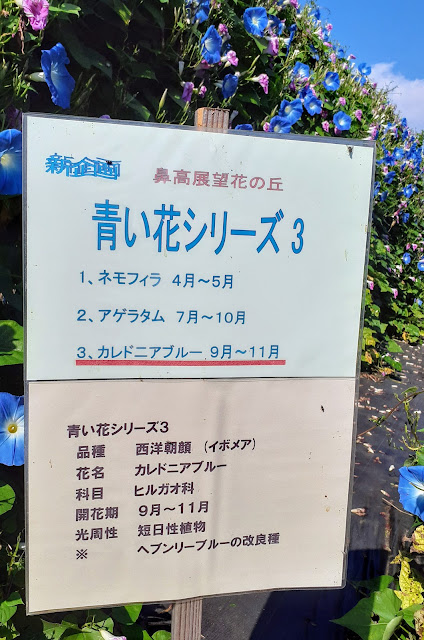 新企画
鼻高展望花の丘
青い花シリーズ3
1、ネモフィラ 4月～5月
2、アゲラタム 7月～10月
3、カレドニアブルー 9月～11月
青い花シリーズ3
品種 西洋朝顔 (イポメア)
花名 カレドニアブルー
科目 ヒルガオ科
開花期 9月～11月
光周性 短日性植物
※ ヘブンリーブルーの改良種